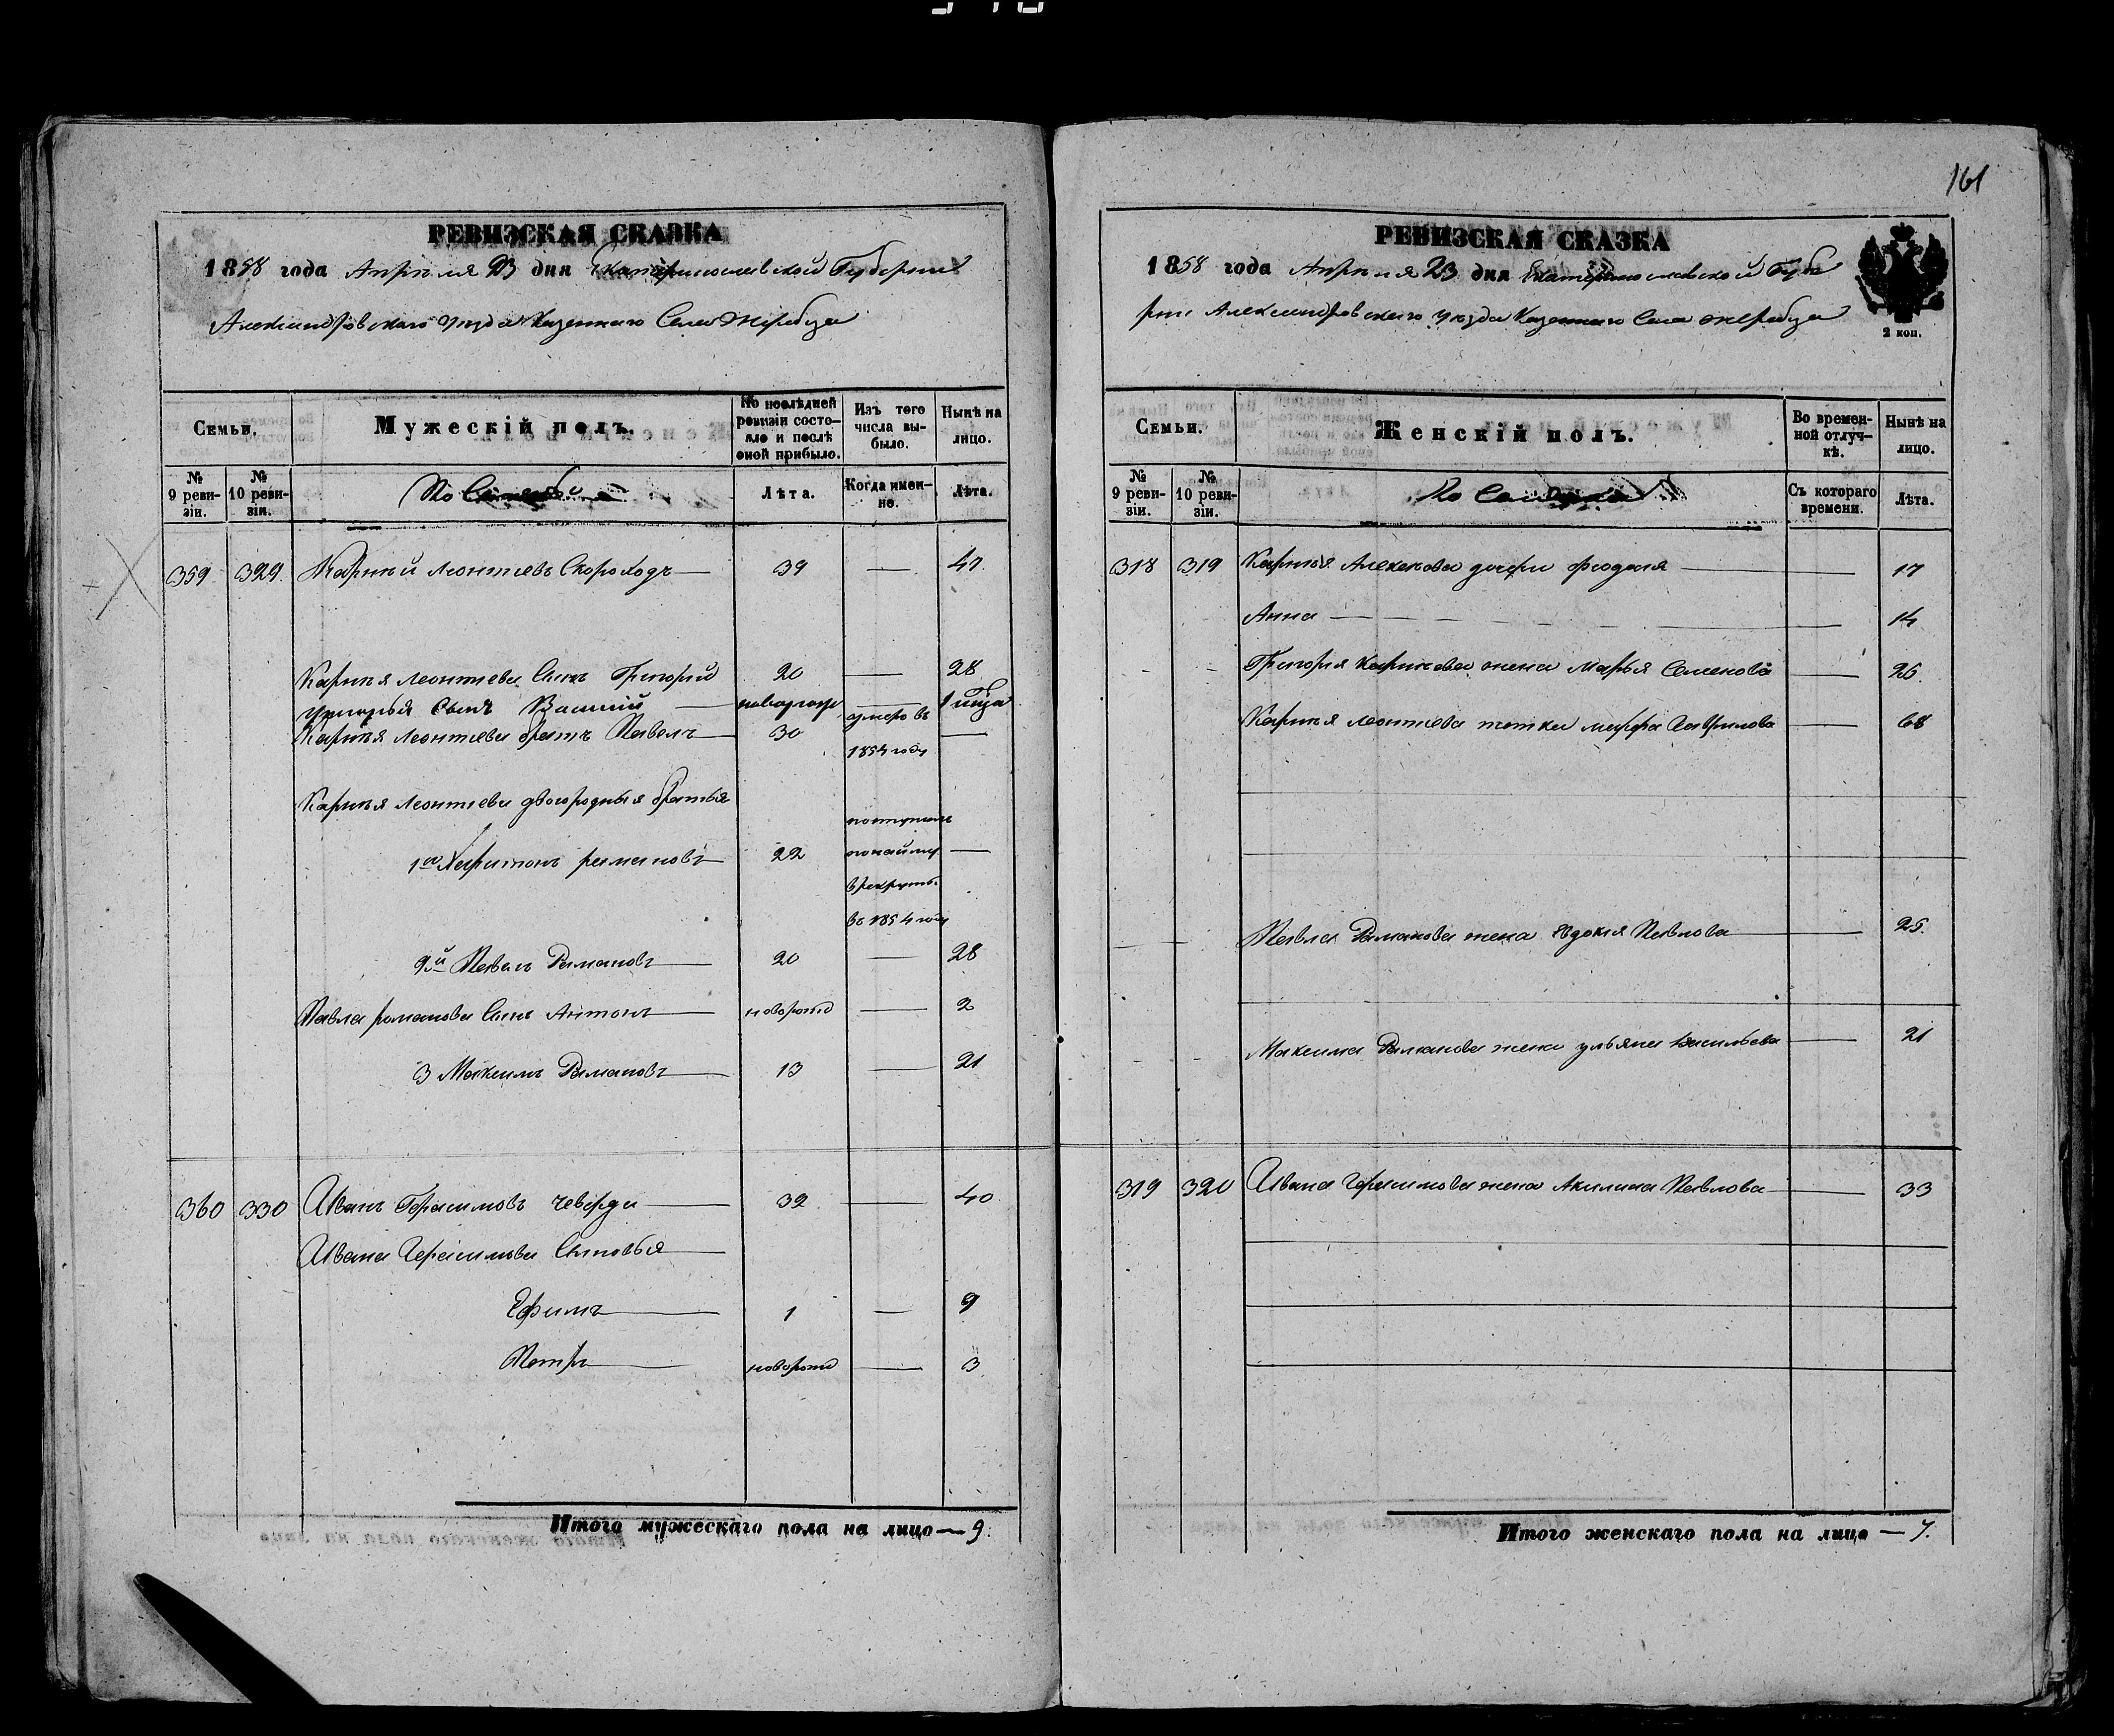 161
РЕВИЗСКАЯ СКАЗКА
1858 года Апреля 23 дня Екатеринославской Губернии
Александровскаго уезда Казеннаго Села Жеребца
Семьи.
Мужескій полъ.
По послѣдней ревизіи состояло и послѣ оной прибыло.
Изъ того числа выбыло.
Нынѣ на лицо.
№ 9 ревизіи.
№ 10 ревизіи.
Лѣта.
Когда именно.
Лѣта.
359 329 Карпъй Леонтіевъ Скороходъ 39 — 47.
Карпѣя Леонтіева Сынъ Григорій 20 — 28
Григорья Сынъ Василій — 
Карпѣя Леонтіева братъ Павелъ 30 умеръ въ 1854 году —
Карпѣя Леонтіева двогородныя братья
1ый Харитонъ Романовъ 22 поступилъ по найму в рекруты въ 1854 году —
2й Павелъ Романовъ 20 — 28
Павла Романова Сынъ Антонъ новорожд — 2
3 Максимъ Романовъ 13 — 21
360 330 Иванъ Герасимовъ Чеверда 32 — 40
Ивана Герасимова Сыновья
Ефимъ 1 — 9
Петръ новорожд — 3
Итого мужескаго пола на лицо — 9.
РЕВИЗСКАЯ СКАЗКА
1858 года Апреля 23 дня Екатеринославской Губе
рніи Александровскаго уезда Казеннаго Села Жеребца
2 коп.
Семьи.
Женскій полъ.
Во временной отлучкѣ.
Нынѣ на лицо.
№ 9 ревизіи.
№ 10 ревизіи.
Съ котораго времени.
Лѣта.
318 319 Карпѣя дочери — 17
Анна — 14
Григорія Карпѣева жена Марья Семенова — 26
Карпѣя Леонтіева тетка Марфа Гаврилова — 68
Павла Романова жена Евдокія Павлова — 25.
Максима Романова жена Ульяна Васильева — 21
319 320 Ивана Герасимова жена Акилина Павлова — 33
Итого женскаго пола на лицо — 7.